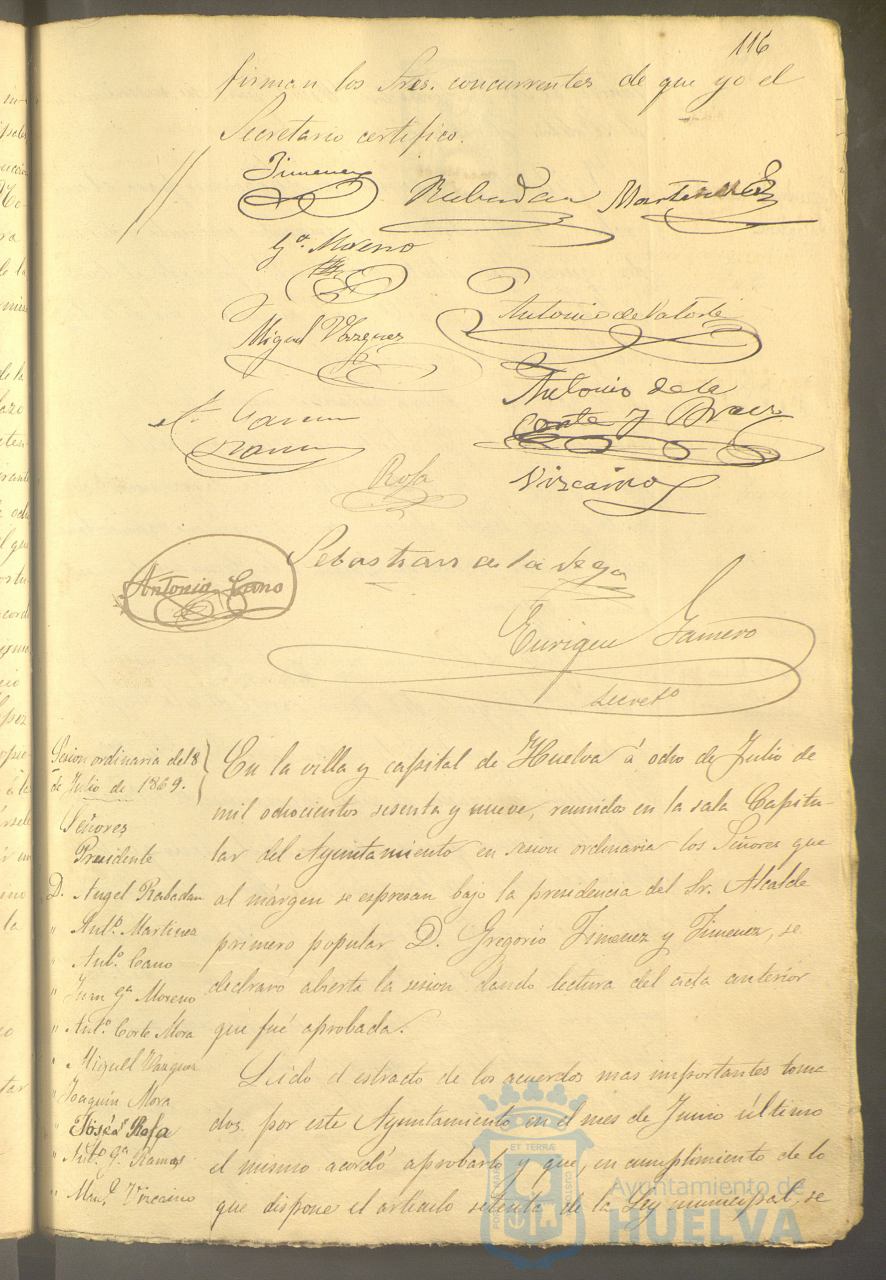 116
firman los Sres. concurrentes de que yo el
Secretario certifico.
Jimenez
Rabadan
Martinez
Ga. Moreno
Miguel Vazquez
Antonio de
Antonio de la
Corte y
Garcia
Ramos
Rofa
Vizcaino
Antonio Cano
Sebastian de la Vega
Enrique Gamero
Secreto
Sesion ordinaria del 8
de Julio de 1869.
Señores
Presidente
D. Angel Rabadan
" Anto. Martinez
" Anto. Cano
" Juan Ga. Moreno
" Anto. Corte Mora
" Miguel Vazquez
" Joaquin Mora
" José Rofa
" Anto. Ga. Ramos
" Manl. Vizcaino
En la villa y capital de Huelva á ocho de Julio de
mil ochocientos sesenta y nueve, reunidos en la sala Capitu-
lar del Ayuntamiento en sesion ordinaria los Señores que
al márgen se espresan bajo la presidencia del Sr. Alcalde
primero popular D. Gregorio Jimenez y Jimenez, se
declaró abierta la sesion dando lectura del acta anterior
que fué aprobada.
Leido el estracto de los acuerdos mas importantes toma
dos por este Ayuntamiento en el mes de Junio último
el mismo acordó aprobarlo y que, en cumplimiento de lo
que dispone el artículo setenta de la Ley municipal, se
Ayuntamiento de
HUELVA